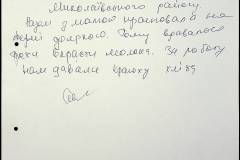 Миколаївського району.
Разом з мамою працювала на
фермі дояркою. Тому вдавалося
трохи вкрасти молока. За роботу
нам давали краюху хліба